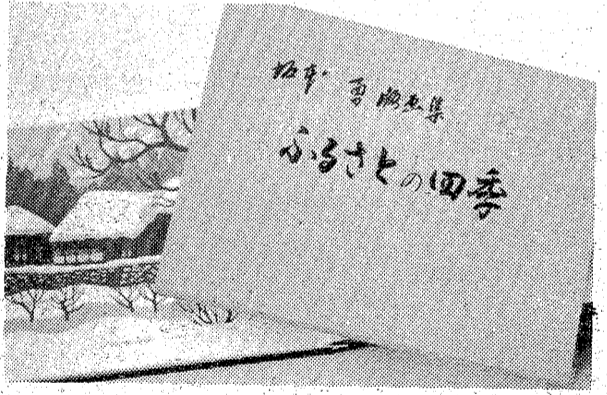 坂本 勇 版画集
ふるさとの四季